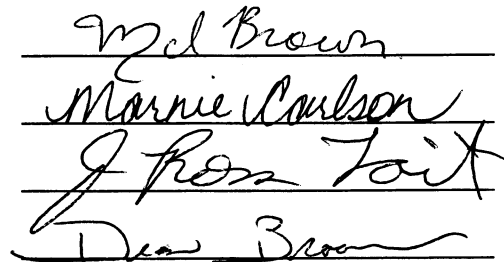 Md Brown
Marnie Coulson
J Ross Tait
Dean Brown